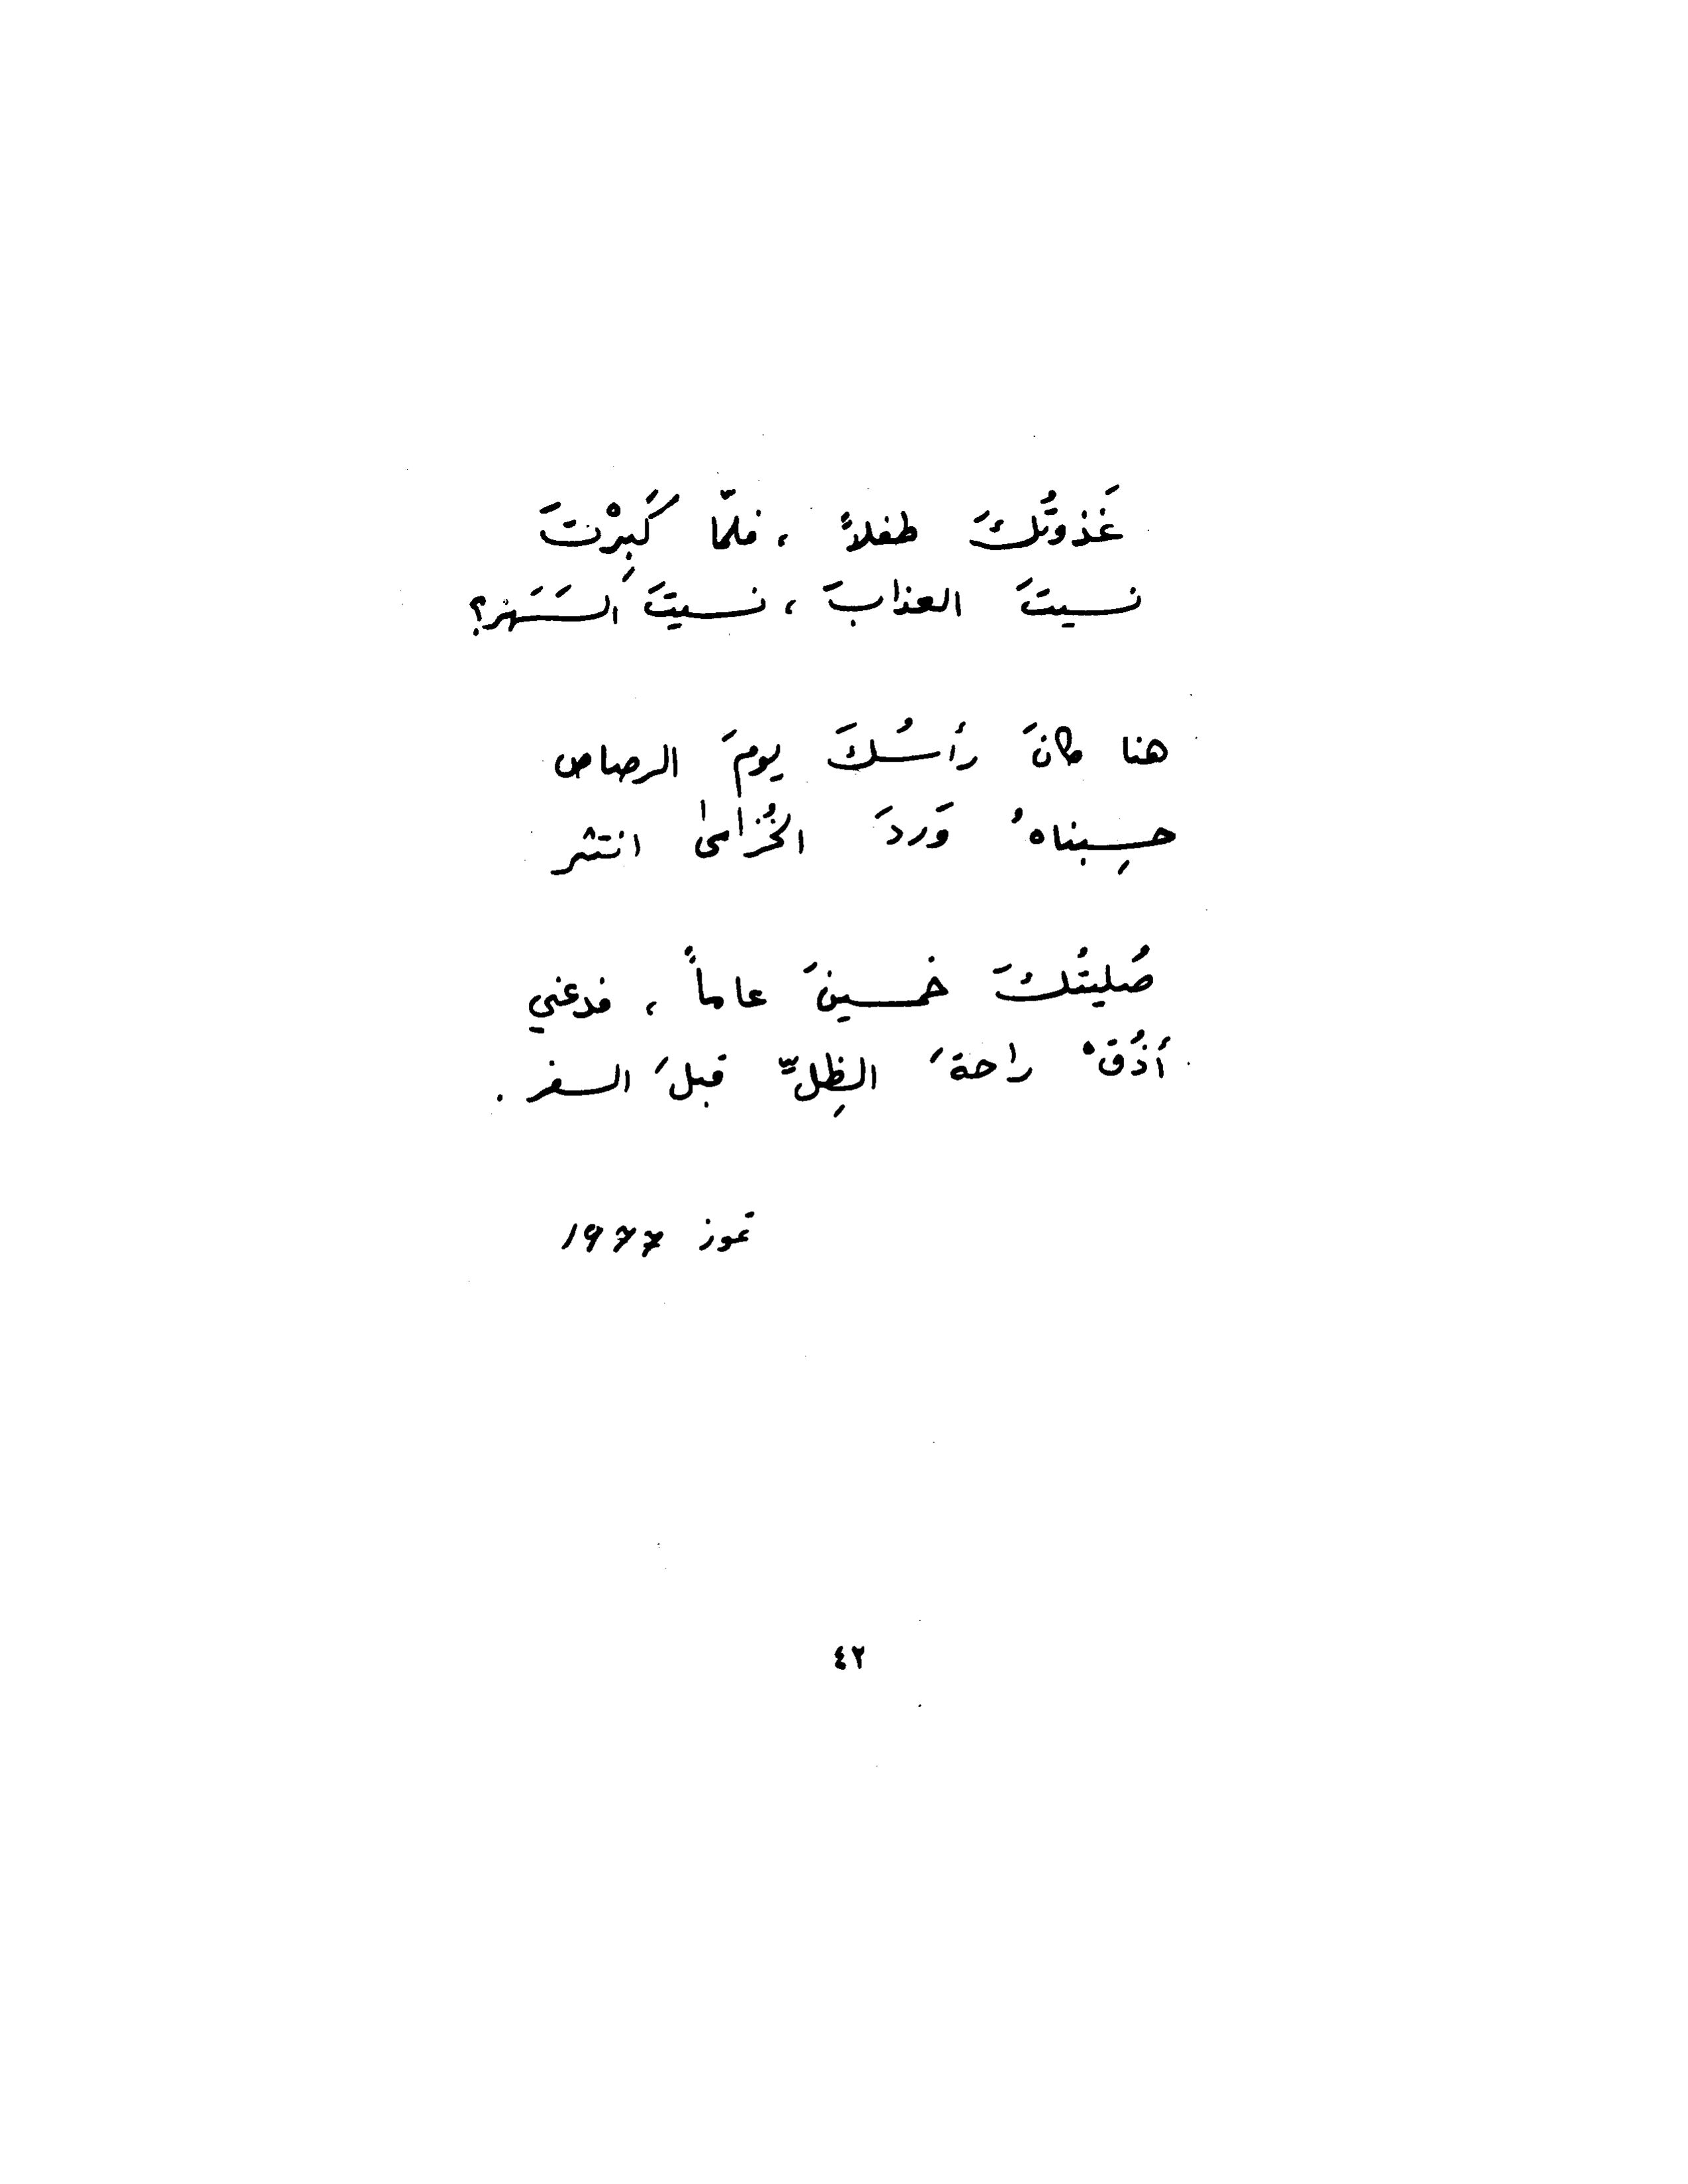 غَذوتُكَ طفلاً ، فلمّا كَبِرْتَ
نسيتَ العذابَ ، نسيتَ السَهَر؟
هنا كانَ رأسُكَ يومَ الرصاص
حسِبناهُ وَردَ الخُزامىٰ انتثر
صُليتُكَ خمسينَ عاماً ، فدعني
أذُقْ راحةَ الظِلِّ قبلَ السفر .
تموز ١٩٧٧
٤٢